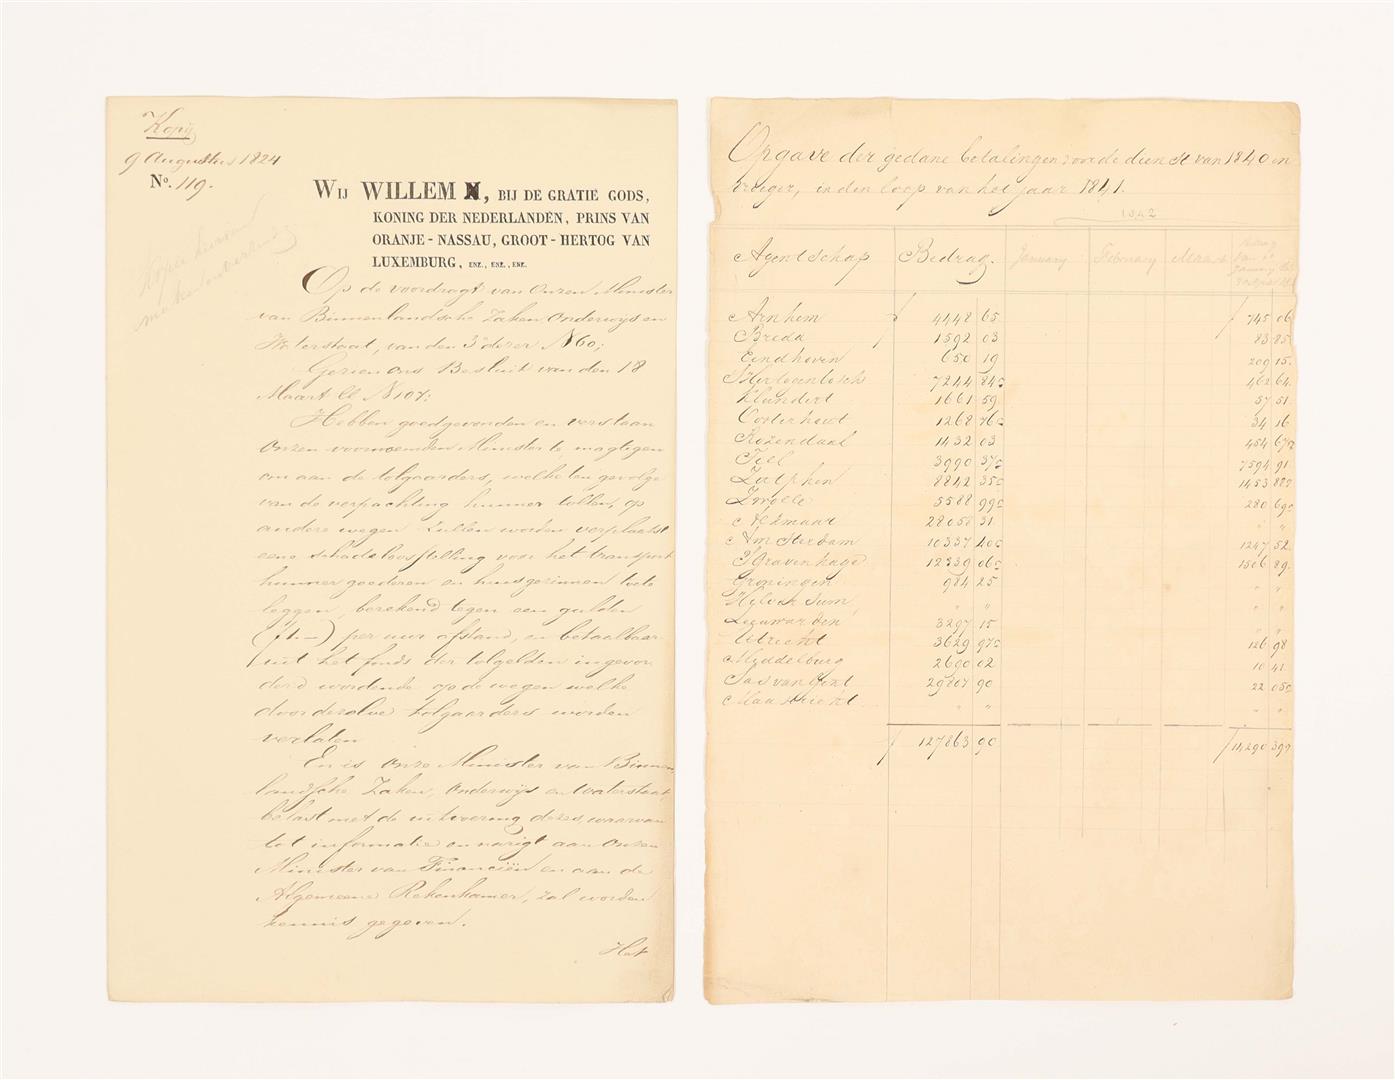 Kopij
9 Augustus 1824
No. 119.
WIJ WILLEM, BIJ DE GRATIE GODS,
KONING DER NEDERLANDEN, PRINS VAN
ORANJE-NASSAU, GROOT-HERTOG VAN
LUXEMBURG, ENZ., ENZ., ENZ.
Op de voordragt van Onzen Minister
van Binnenlandsche Zaken, Onderwijs en
Waterstaat, van den 3n dezer No 60;
Gezien ons Besluit van den 18
Maart ll No 107;
Hebben goedgevonden en verstaan
Onzen voornoemden Minister te magtigen
om aan de tolgaarders, welke ten gevolge
van de verpachting hunner tollen, op
andere wegen zullen worden verplaatst
eene schadeloosstelling voor het transport
hunner goederen en huisgezinnen toete
leggen, berekend tegen een gulden
(f1.—) per uur afstand, en betaalbaar
uit het fonds der tolgelden ingevor
derd wordende op de wegen welke
door dezelve tolgaarders worden
verlaten
En is Onze Minister van Binnen
landsche Zaken, Onderwijs en Waterstaat
belast met de uitvoering dezes, waarvan
tot informatie en narigt aan Onzen
Minister van Financiën en aan de
Algemeene Rekenkamer, zal worden
kennis gegeven.
Het
Opgave der gedane betalingen voor de dienst van 1840 en
vroeger, in den loop van het jaar 1841.
1842
Agentschap Bedrag. January February Maart
Arnhem f 4448 65 f 745 06
Breda 1592 03 83 85
Eindhoven 650 19 209 15
's Hertogenbosch 7244 84 462 64
Klundert 1661 59 57 51
Oosterhout 1268 76 34 16
Rozendaal 1432 03 454 67
Tiel 3990 37 7594 91
Zutphen 8842 35 1453 88
Zwolle 5588 99 280 69
Alkmaar 28058 31 " "
Amsterdam 10337 40 1247 52
's Gravenhage 12339 06 1506 89
Groningen 984 25 " "
Hylversum " " " "
Leeuwarden 3297 15 " "
Utrecht 3629 97 126 98
Middelburg 2690 02 10 41
Sas van Gent 29807 90 22 05
Maastricht " " " "
f 127863 90 f 14290 39